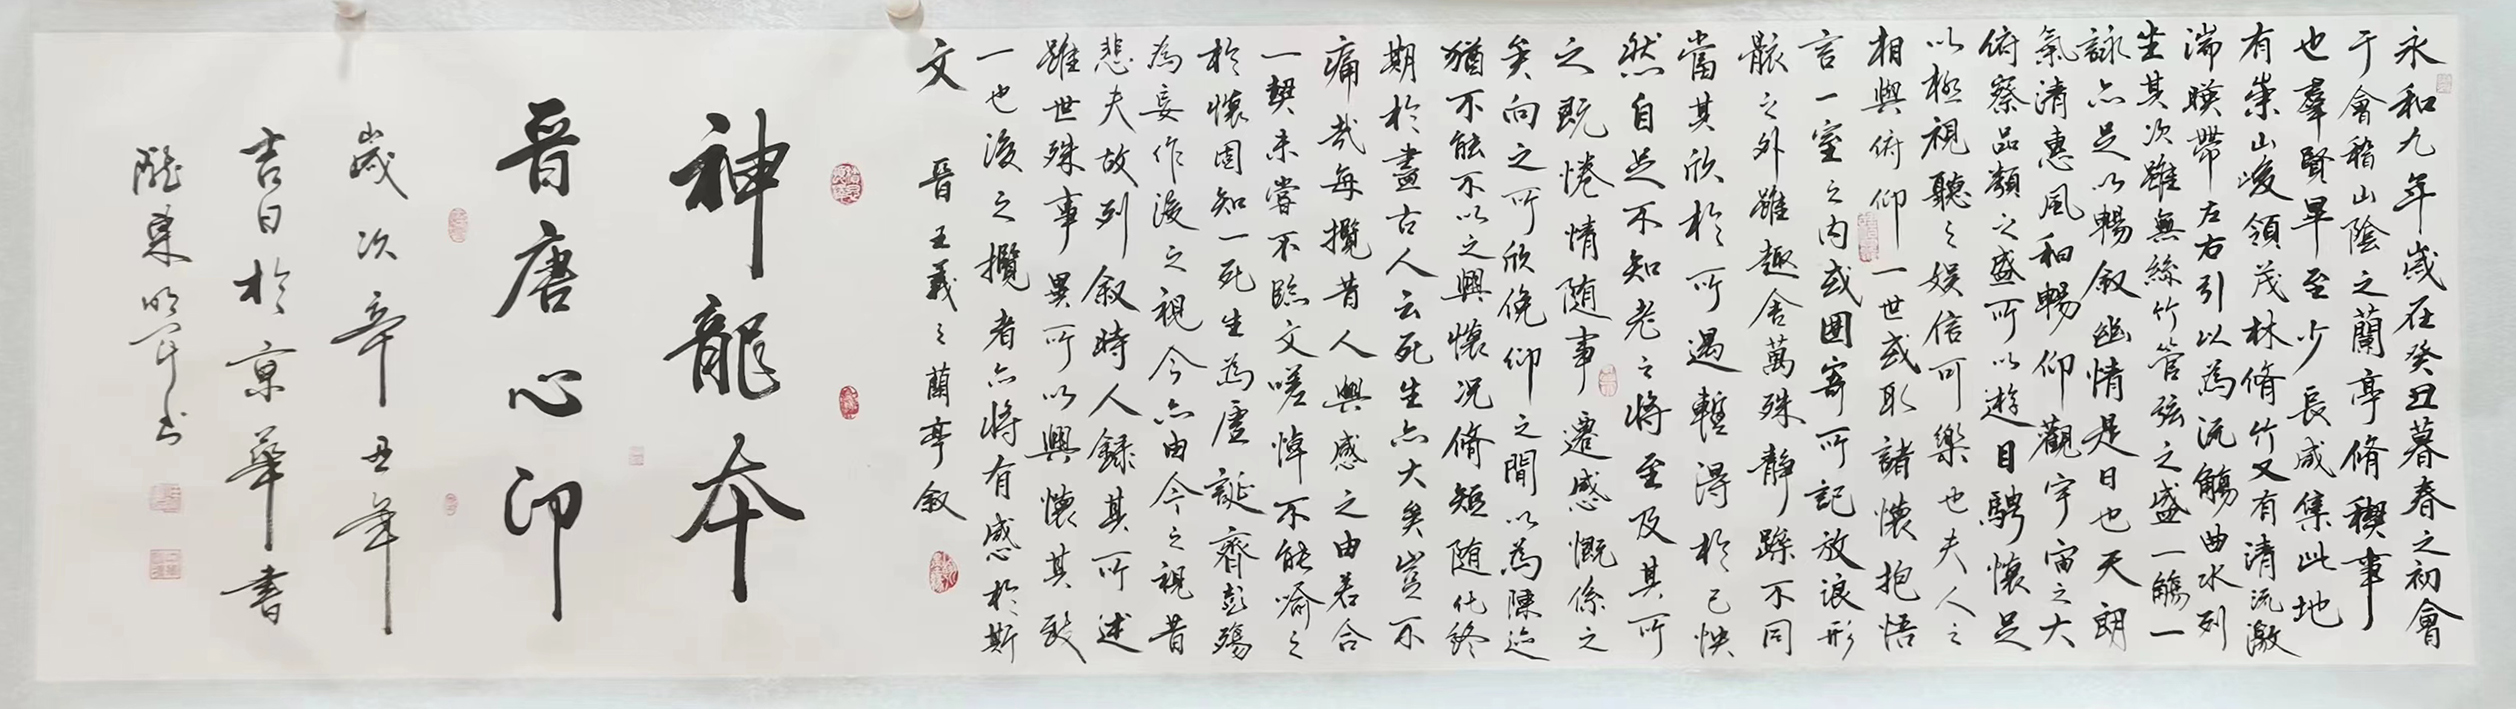 永和九年歲在癸丑暮春之初會
于會稽山陰之蘭亭脩稧事
也羣賢畢至少長咸集此地
有崇山峻領茂林脩竹又有清流激
湍暎帶左右引以為流觴曲水列
坐其次雖無絲竹管弦之盛一觴一
詠亦足以暢叙幽情是日也天朗
氣清惠風和暢仰觀宇宙之大
俯察品類之盛所以遊目騁懷足
以極視聽之娛信可樂也夫人之
相與俯仰一世或取諸懷抱悟
言一室之内或因寄所託放浪形
骸之外雖趣舍萬殊静躁不同
當其欣於所遇蹔得於己怏
然自足不知老之將至及其所
之既惓情随事遷感慨係之
矣向之所欣俛仰之間以為陳迹
猶不能不以之興懷况脩短随化終
期於盡古人云死生亦大矣豈不
痛哉每攬昔人興感之由若合
一契未嘗不臨文嗟悼不能喻之
於懷固知一死生為虛誕齊彭殤
為妄作後之視今亦由今之視昔
悲夫故列叙時人録其所述
雖世殊事異所以興懷其致
一也後之攬者亦將有感於斯
文 晉王羲之蘭亭叙
神龍本
晉唐心印
歲次辛丑年
吉日於京華書
隴東明军书